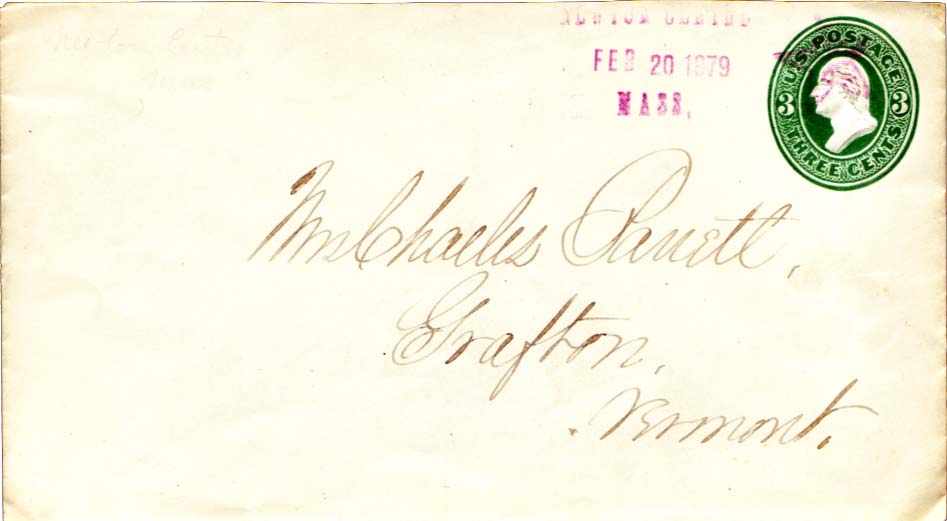 Newton Centre
NEWTON CENTRE
FEB 20 1879
MASS.
U.S. POSTAGE
3 3
THREE CENTS
Mrs Charles Parrett,
Grafton,
Vermont.